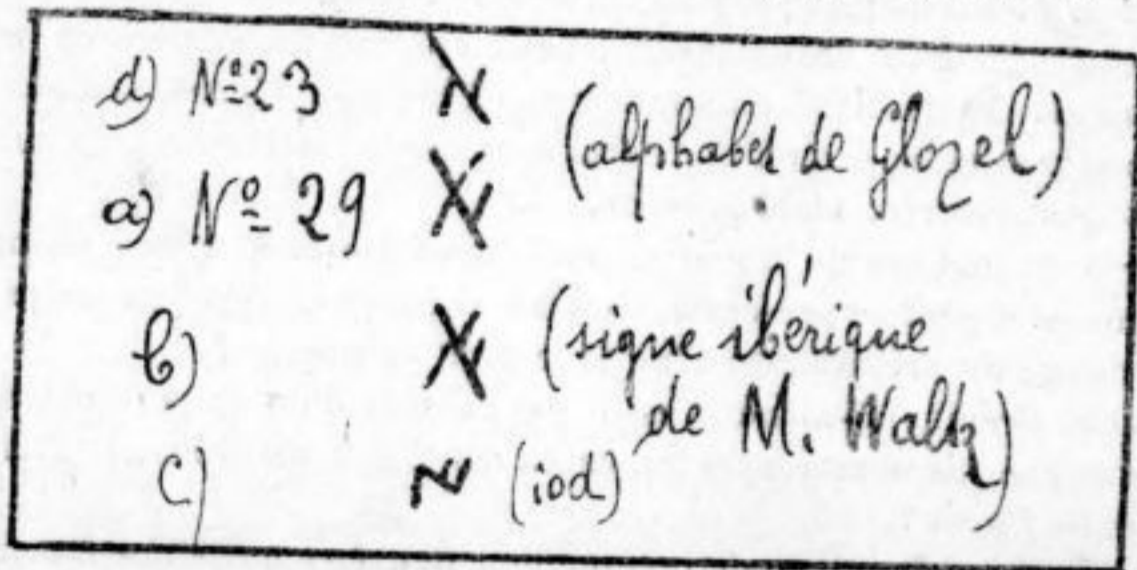 d) Nº 23 (alphabet de Glozel)
a) Nº 29
b) (signe ibérique
de M. Waltz)
c) (iod)